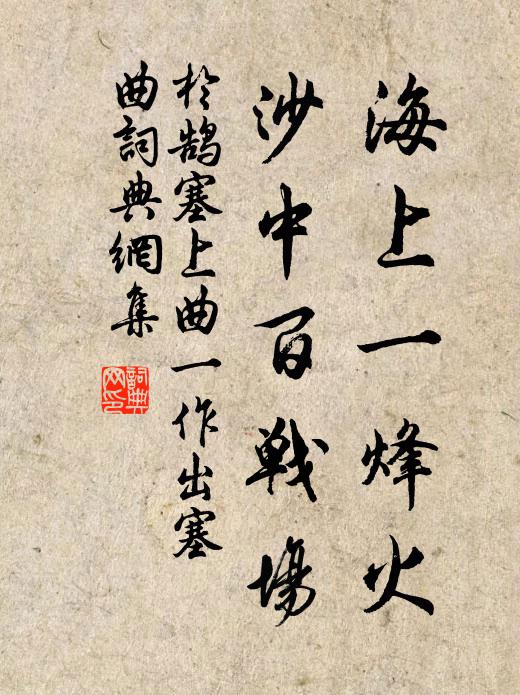 海上一烽火
沙中百戰場
於鵠塞上曲一作出塞
曲詞典網集
詞典
网印